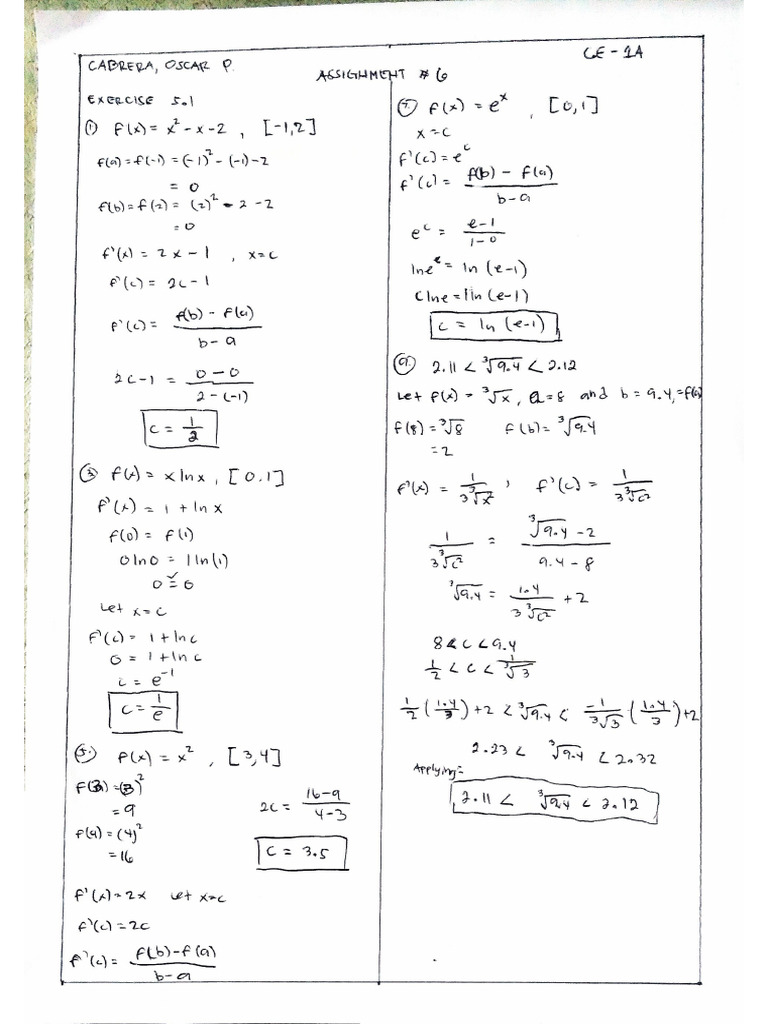 CABRERA, OSCAR P.
CE - 1A
ASSIGNMENT # 6
EXERCISE 5.1
① f(x) = x² - x - 2 , [-1,2]
f(a) = f(-1) = (-1)² - (-1) - 2
= 0
f(b) = f(2) = (2)² - 2 - 2
= 0
f'(x) = 2x - 1 , x=c
f'(c) = 2c - 1
f'(c) = f(b) - f(a) / b - a
2c - 1 = 0 - 0 / 2 - (-1)
c = 1/2
③ f(x) = x ln x , [0.1]
f'(x) = 1 + ln x
f(0) = f(1)
0 ln 0 = 1 ln(1)
0 = 0
Let x=c
f'(c) = 1 + ln c
0 = 1 + ln c
c = e⁻¹
c = 1/e
5. f(x) = x² , [3,4]
f(3) = (3)²
= 9
f(4) = (4)²
= 16
2c = 16-9 / 4-3
c = 3.5
f'(x) = 2x Let x=c
f'(c) = 2c
f'(c) = f(b) - f(a) / b - a
7. f(x) = eˣ , [0,1]
x = c
f'(c) = eᶜ
f'(c) = f(b) - f(a) / b - a
eᶜ = e-1 / 1-0
ln eᶜ = ln (e-1)
c ln e = ln (e-1)
c = ln (e-1)
9. 2.11 < ³√9.4 < 2.12
Let f(x) = ³√x, a=8 and b = 9.4,
f(8) = ³√8 f(b) = ³√9.4
= 2
f'(x) = 1 / 3³√x² , f'(c) = 1 / 3³√c²
1 / 3³√c² = ³√9.4 - 2 / 9.4 - 8
³√9.4 = 1.4 / 3³√c² + 2
8 < c < 9.4
1/2 < c < 1/³√3
1/2 (1.4/3) + 2 < ³√9.4 < -1/3√3 (1.4/3) + 2
2.23 < ³√9.4 < 2.32
Applying=
2.11 < ³√9.4 < 2.12